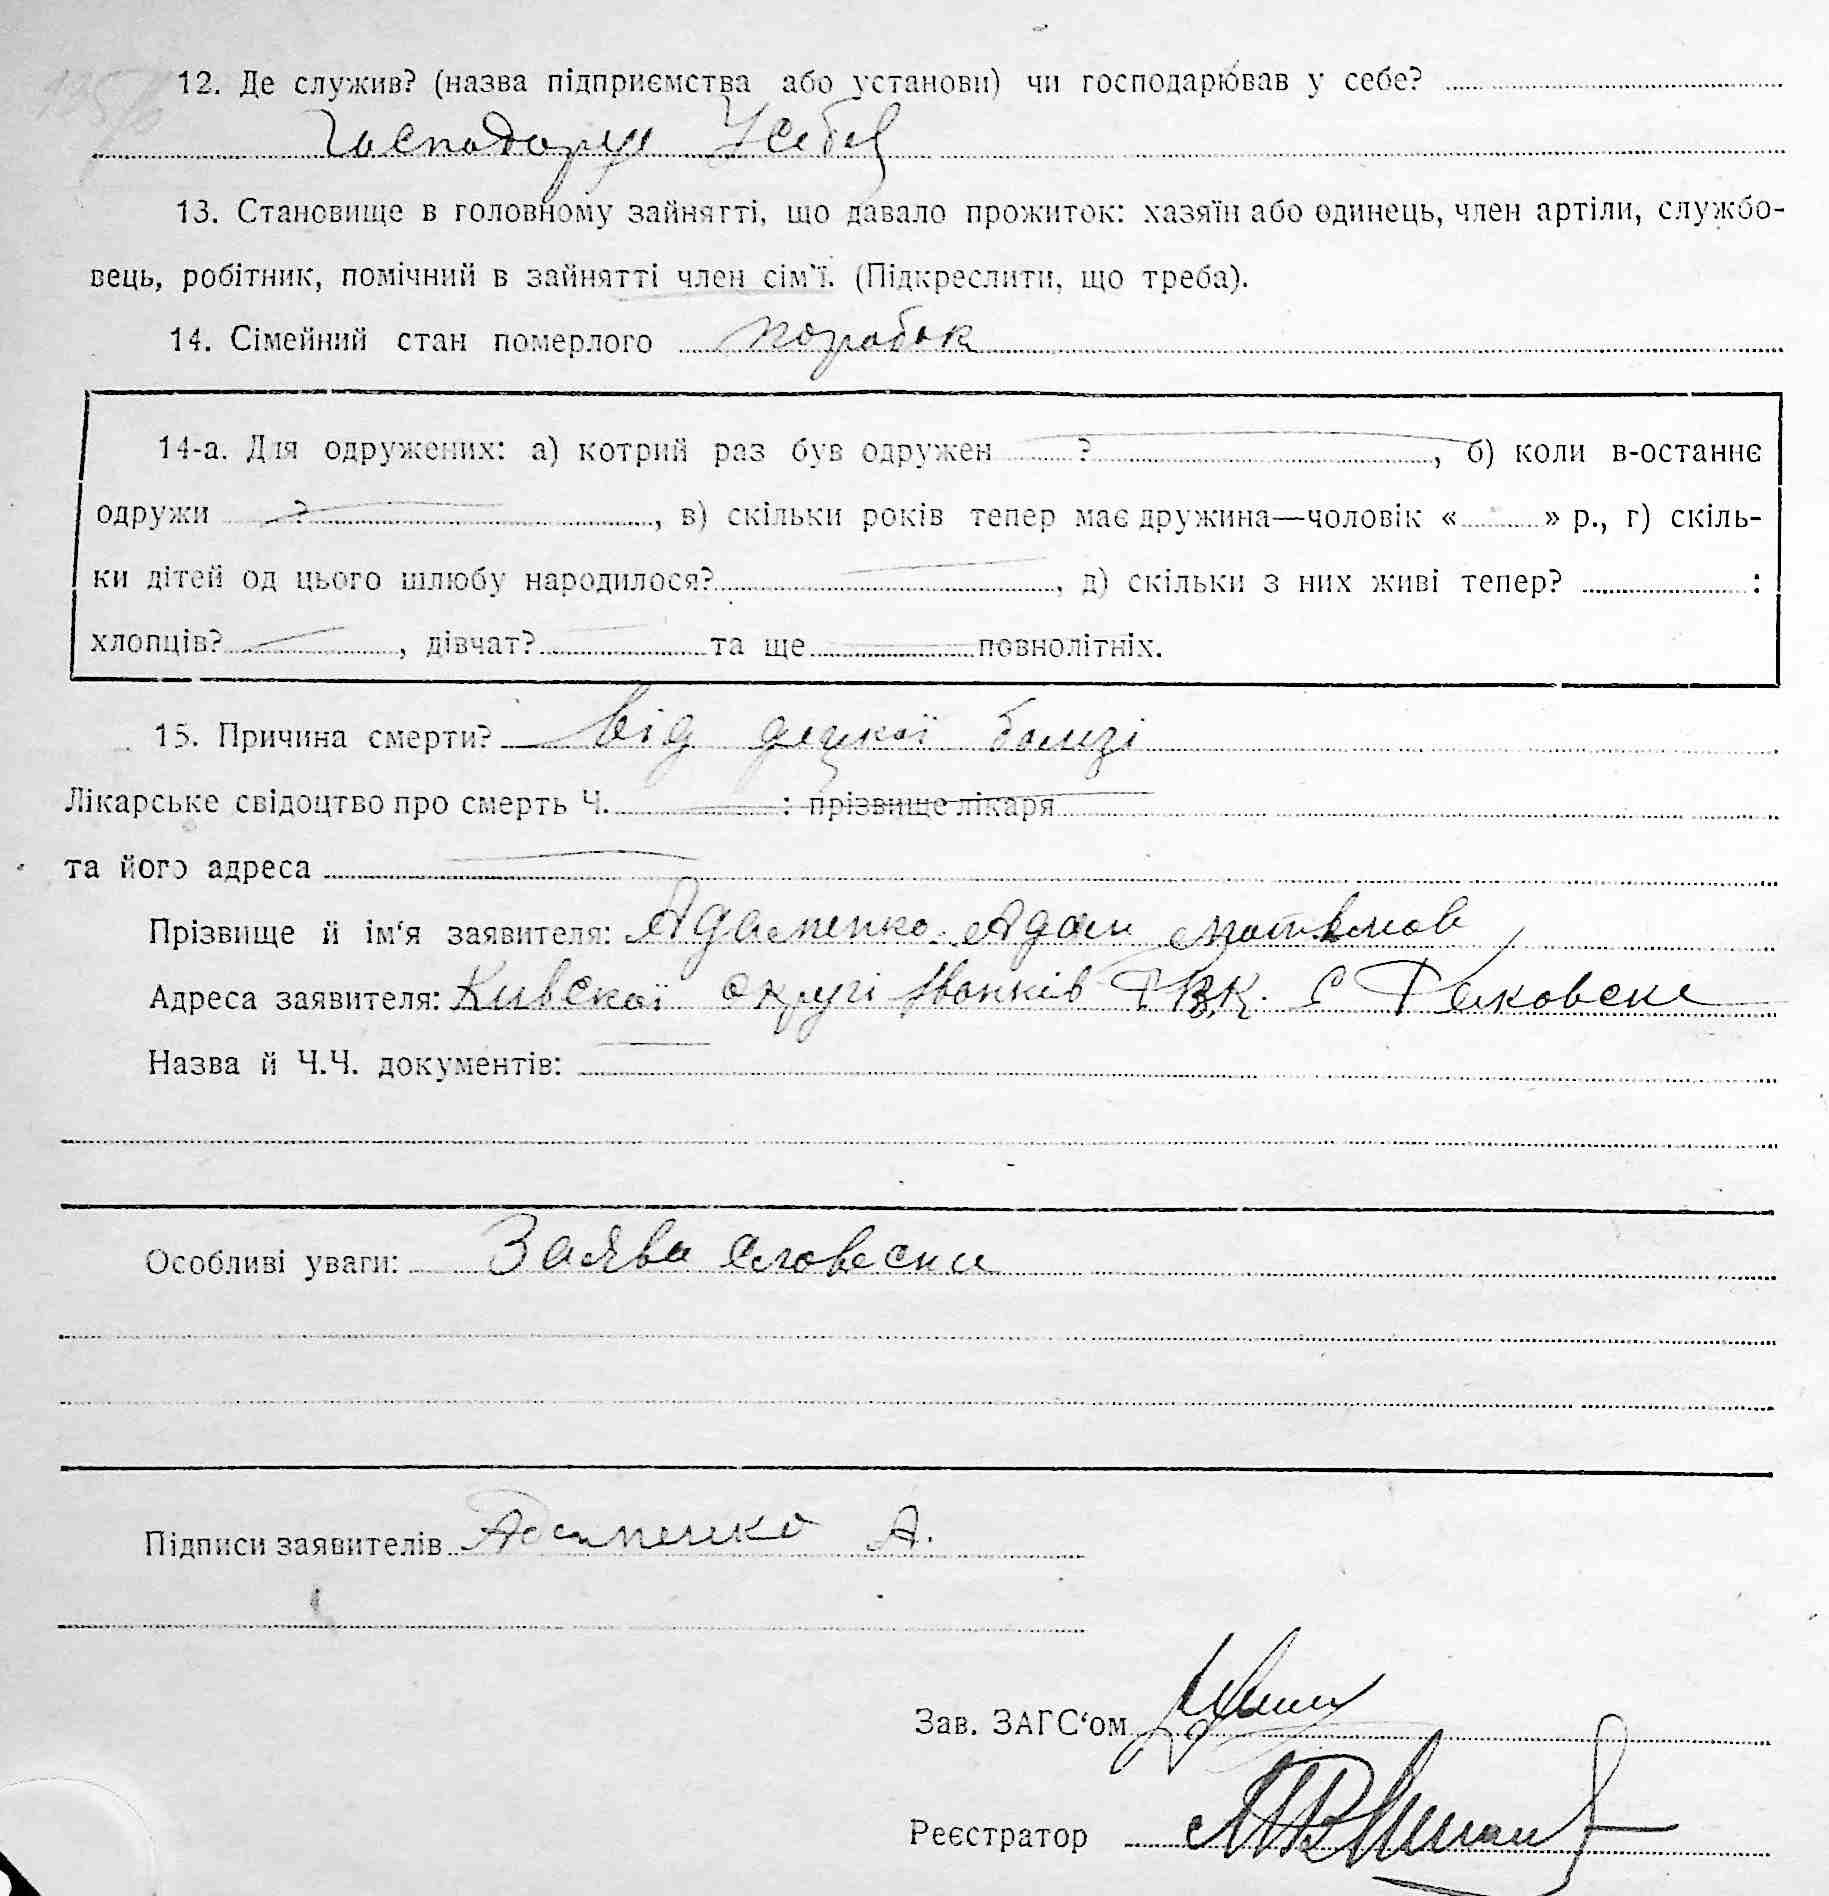 12. Де служив? (назва підприємства або установи) чи господарював у себе?
Господарує У себе
13. Становище в головному зайнятті, що давало прожиток: хазяїн або одинець, член артіли, службо-
вець, робітник, помічний в зайнятті член сім'ї. (Підкреслити, що треба).
14. Сімейний стан померлого парубок
14-а. Для одружених: а) котрий раз був одружен ? , б) коли в-останнє
одружи ? , в) скільки років тепер має дружина—чоловік « » р., г) скіль-
ки дітей од цього шлюбу народилося? , д) скільки з них живі тепер? :
хлопців? , дівчат? та ще повнолітніх.
15. Причина смерти? від
Лікарське свідоцтво про смерть Ч. : прізвище лікаря
та його адреса
Прізвище й ім'я заявителя: Адаменко Адам
Адреса заявителя: Кивскої округі РВК. С
Назва й Ч.Ч. документів:
Особливі уваги: Заява словесна
Підписи заявителів Адаменко А.
Зав. ЗАГС'ом
Реєстратор